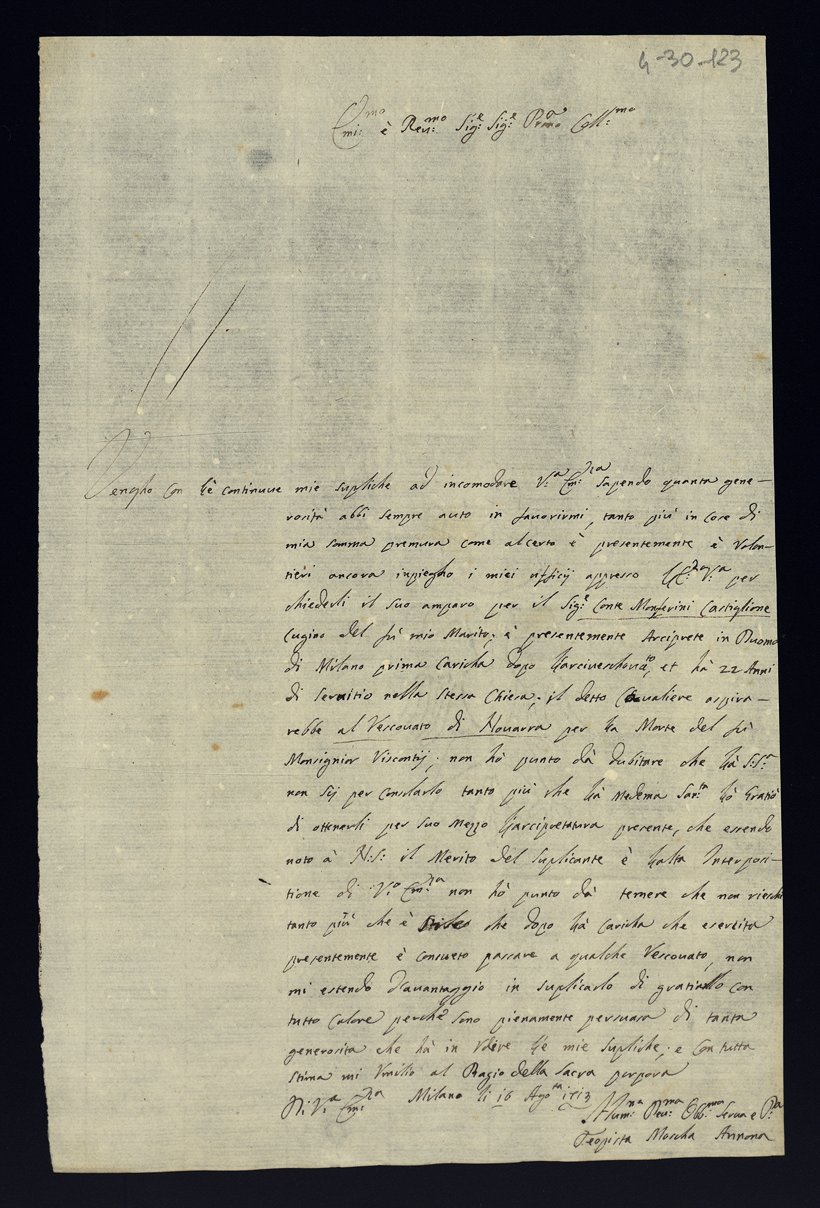 4-30-123
Emi:mo è Reu:mo Sig:e Sig:e Prone Coll:mo
Vengho con le continue mie supliche ad incomodare V:a Em:za sapendo quanta gene-
rosità abbi sempre auto in fauorirmi, tanto più in cose di
mia somma premura come alcerto è presentemente è volon-
tieri ancora inpiegho i miei ufficij appresso per
chiederli il suo amparo per il Sig:e Conte Castiglione
Cugino del fù mio Marito; è presentemente Arciprete in Duomo
di Milano prima caricha dopo larciueschouato, et hà 22 Anni
di seruitio nella stessa Chiesa; il detto Caualiere aspira-
rebbe al Vescouato di Nouarra per la Morte del fù
Monsignior Viscontij; non hò punto dà dubitare che là S:S:a
non sij per consolarlo tanto più che là Medema San:ta
di ottenerli per suo Mezzo larcipretatura presente, che essendo
noto à N:S: il Merito del suplicante è lalta Interposi-
tione di V:a Em:za non hò punto dà temere che non rieschi
tanto più che è stile che dopo là caricha che esercita
presentemente è consueto passare a qualche Vescouato, non
mi estendo d'auantaggio in suplicarlo di gratiallo con
tutto calore perche sono pienamente persuasa di tanta
generosita che hà in vdere le mie supliche; e con tutta
stima mi vmilio al Bagio della sacra porpora
Di V:a Em:za Milano li 16 Ago:to 1713
Hum:ma Deu:ma Obb:ma Serua e
Teopista Moscha Annona